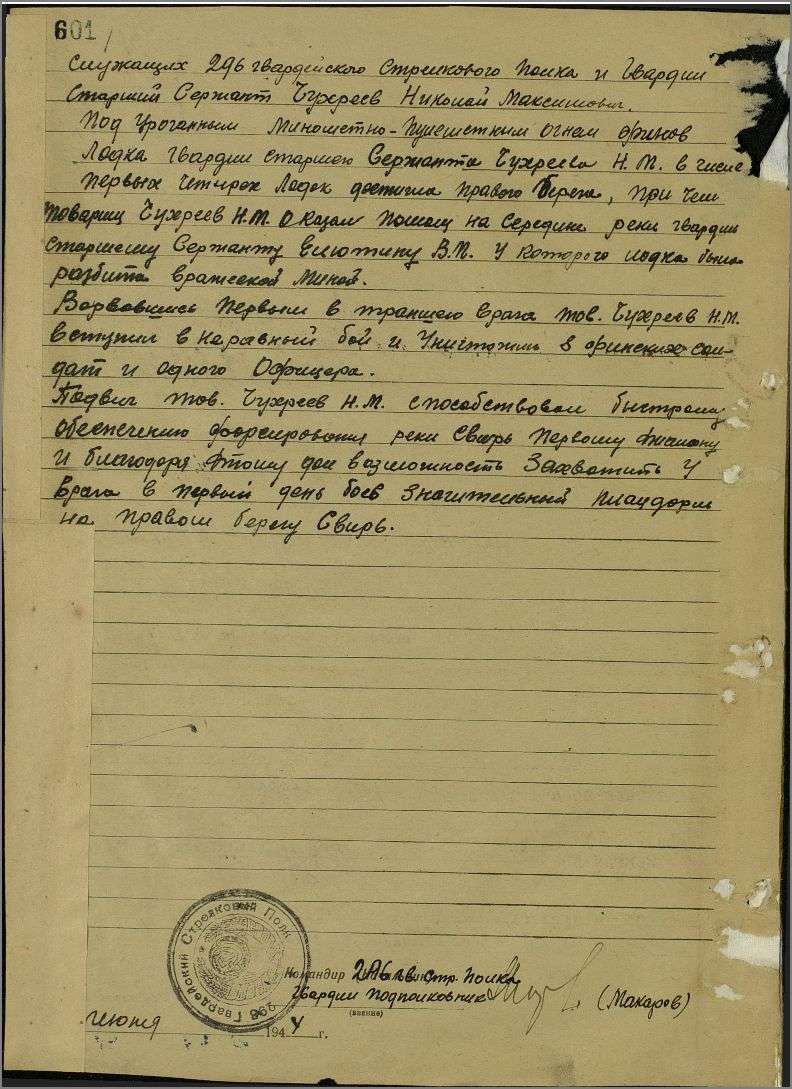 601
служащих 296 гвардейского стрелкового полка и гвардии
старший сержант Чухреев Николай Максимович.
Под ураганным минометно-пулеметным огнем финов
лодка гвардии старшего сержанта Чухреева Н.М. в числе
первых четырех лодок достигла правого берега, при чем
товарищ Чухреев Н.М. оказал помощь на середине реки гвардии
старшему сержанту Елютину В.П. у которого лодка была
разбита вражеской миной.
Ворвавшись первым в траншею врага тов. Чухреев Н.М.
вступил в неравный бой и уничтожил 8 финских сол-
дат и одного офицера.
Подвиг тов. Чухреев Н.М. способствовал быстрому
обеспечению форсирования реки Свирь первому эшелону
и благодаря этому дал возможность захватить у
врага в первый день боев значительный плацдарм
на правом берегу Свирь.
296 Гвардейский Стрелковый Полк
Командир 296 гв. стр. полка
гвардии подполковник (Макаров)
(звание)
июня 1944 г.